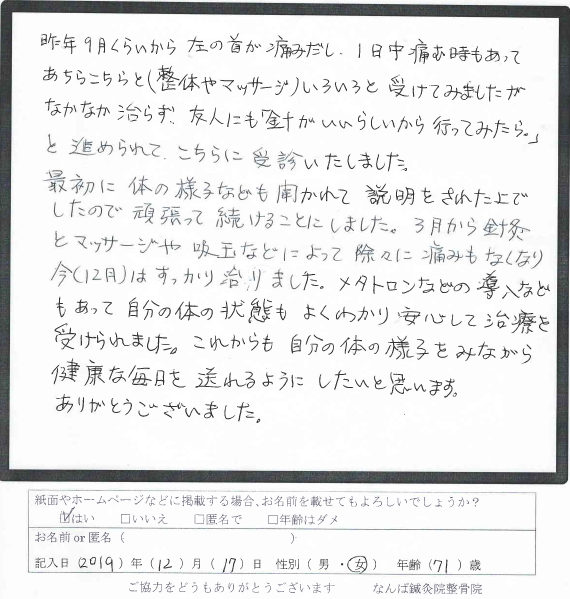 昨年9月くらいから 左の首が痛みだし、1日中痛む時もあって
あちらこちらと(整体やマッサージ)いろいろと 受けてみましたが
なかなか治らず、友人にも「針がいいらしいから 行ってみたら。」
と 進められて、こちらに 受診いたしました。
最初に 体の様子なども 聞かれて 説明をされた上で
したので 頑張って 続けることにしました。3月から 針灸
とマッサージや 吸玉などによって 除々に 痛みもなくなり
今(12月)はすっかり治りました。メタトロンなどの 導入など
もあって 自分の体の状態も よくわかり 安心して治療を
受けられました。これからも 自分の体の様子をみながら
健康な毎日を 送れるように したいと思います。
ありがとうございました。
紙面やホームページなどに掲載する場合、お名前を載せてもよろしいでしょうか?
☑はい □いいえ □匿名で □年齢はダメ
お名前 or 匿名 ( )
記入日 (2019) 年 (12) 月 (17)日 性別 ( 男 ・ 女 ) 年齢 (71) 歳
ご協力をどうもありがとうございます なんば鍼灸院整骨院